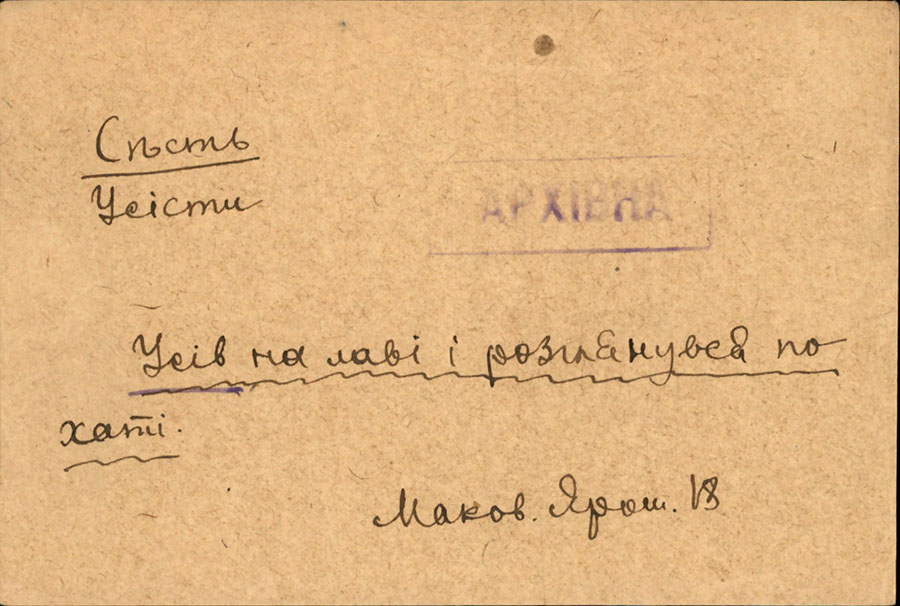 Сѣсть
Усісти
АРХІВНА
Усів на лаві і розглянувся по
хаті.
Маков. Ярош. 18